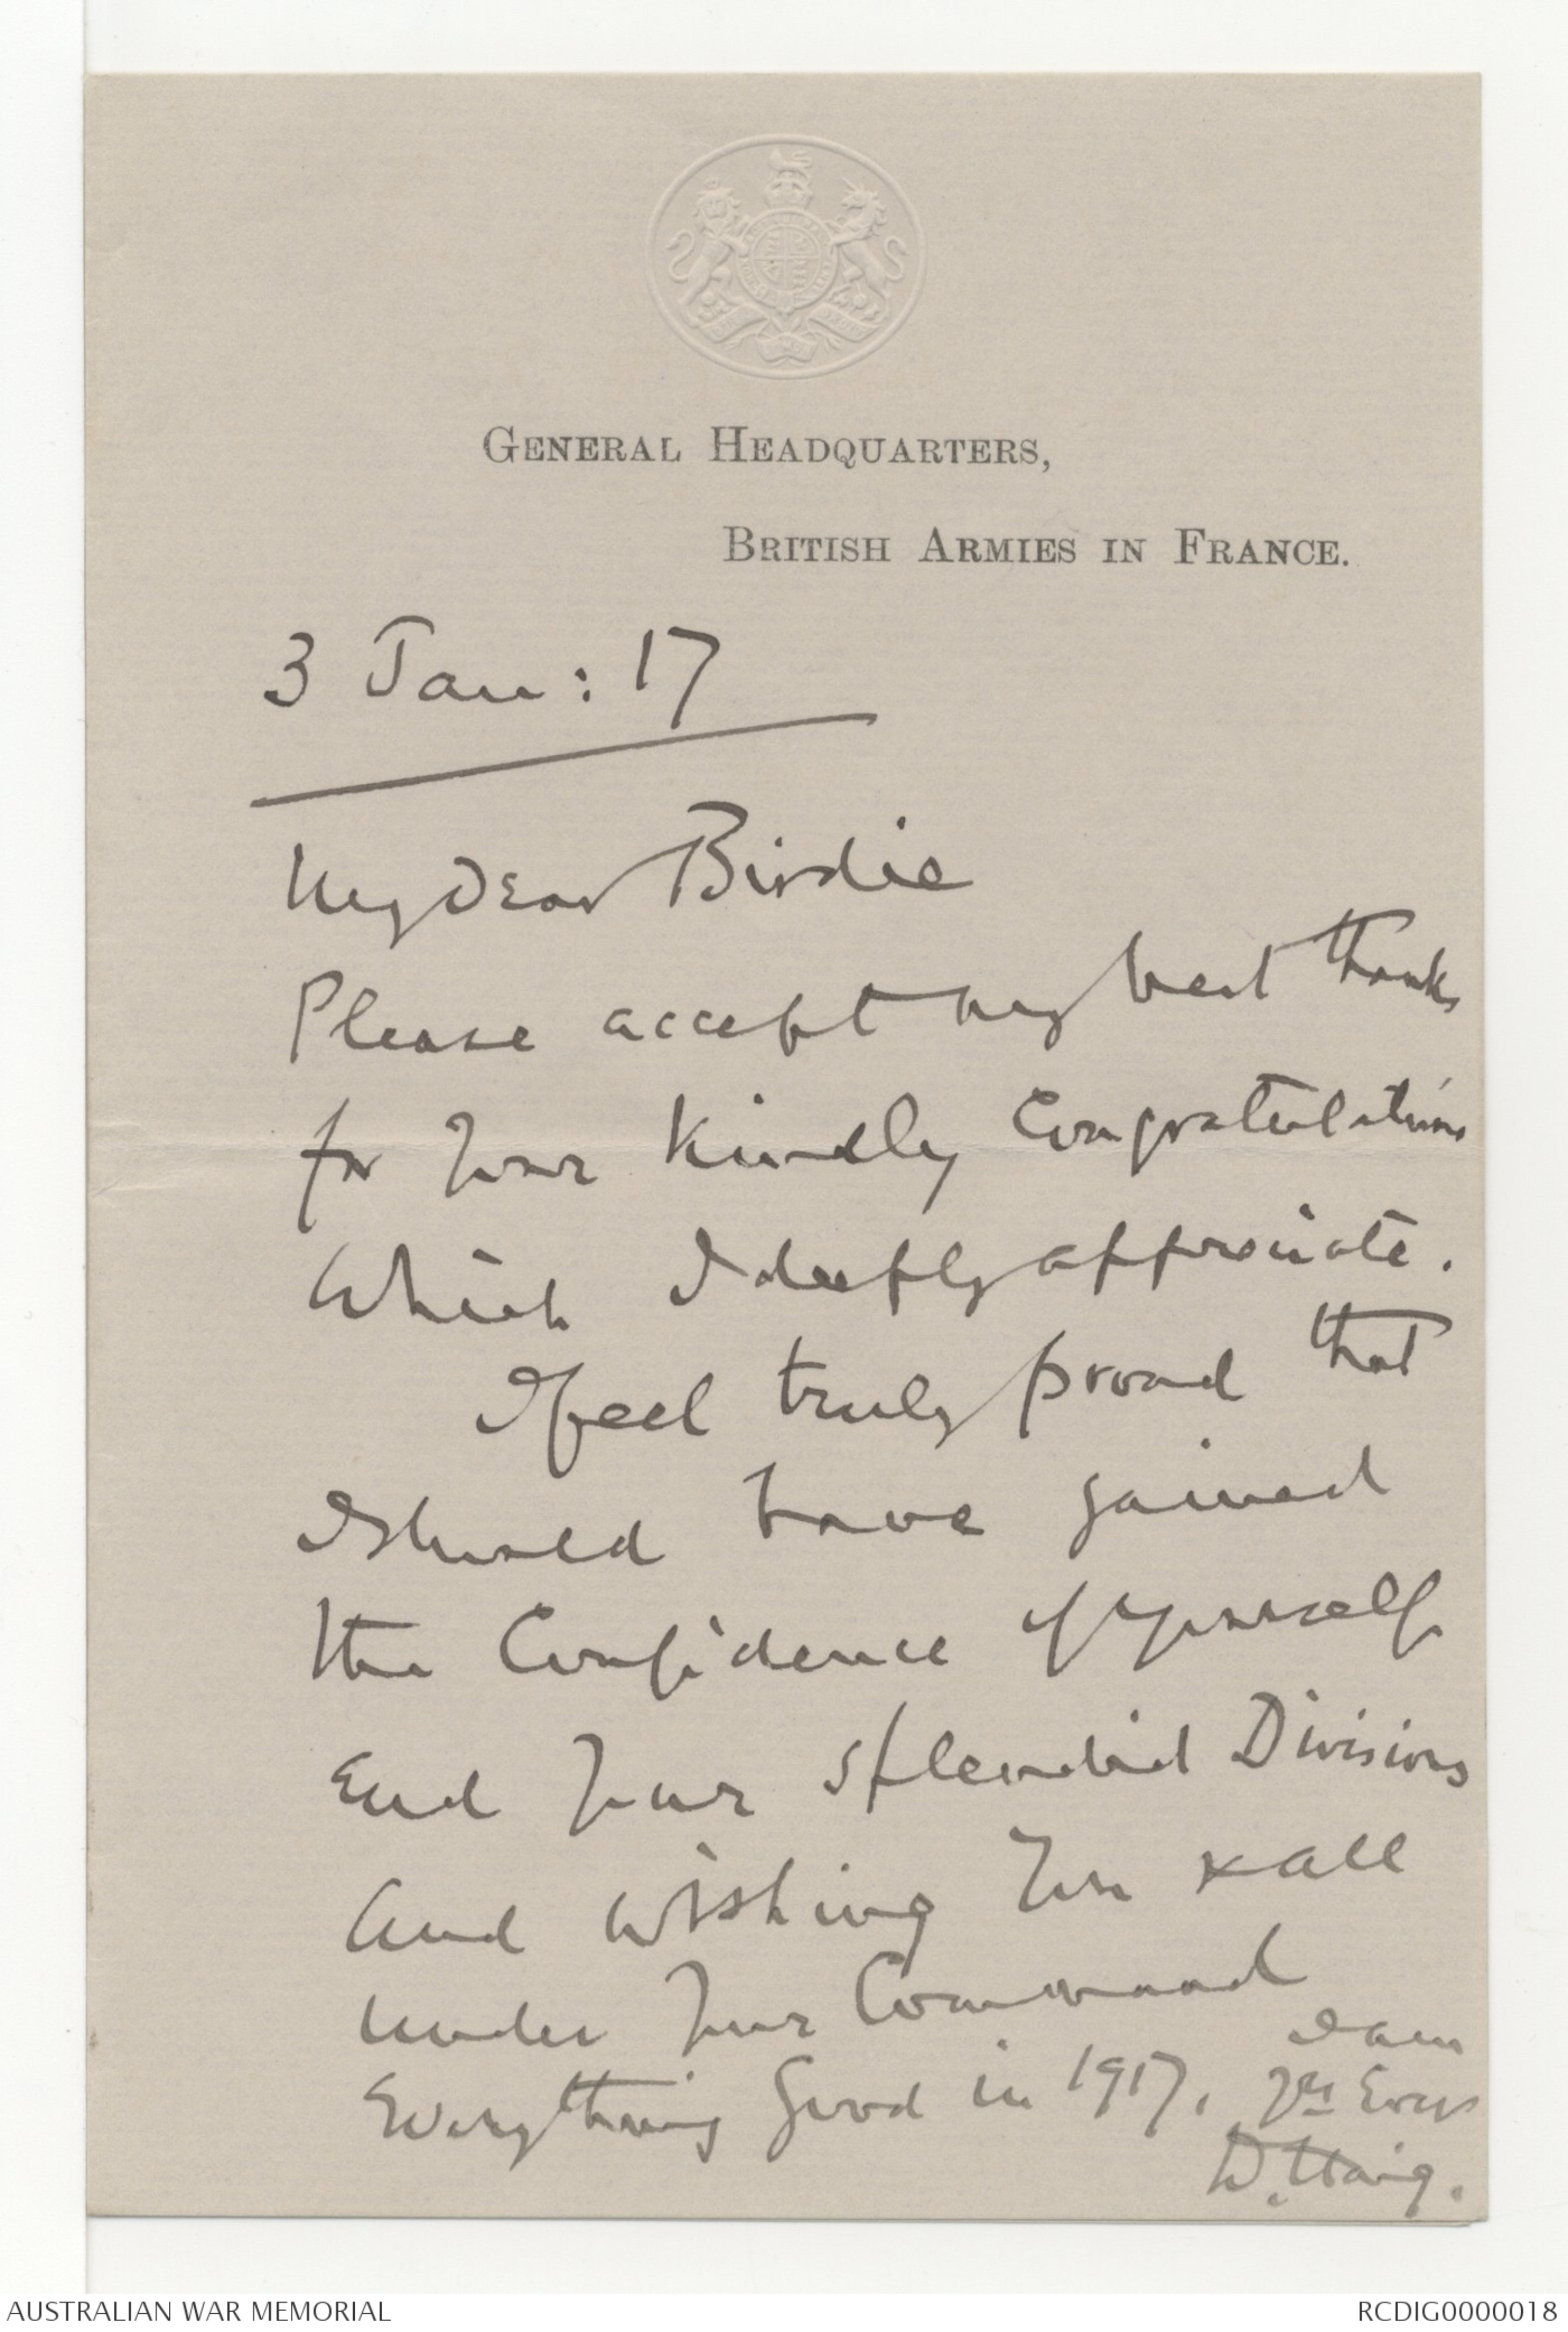 GENERAL HEADQUARTERS,
BRITISH ARMIES IN FRANCE.
3 Jan: 17
My dear Birdie
Please accept my best thanks
for your kindly Congratulations
which I deeply appreciate.
I feel truly proud that
I should have gained
the Confidence of yourself
and your splendid Divisions
And wishing you & all
under your Command
Everything Good in 1917. I am
Yrs Ever
D. Haig.
AUSTRALIAN WAR MEMORIAL
RCDIG0000018